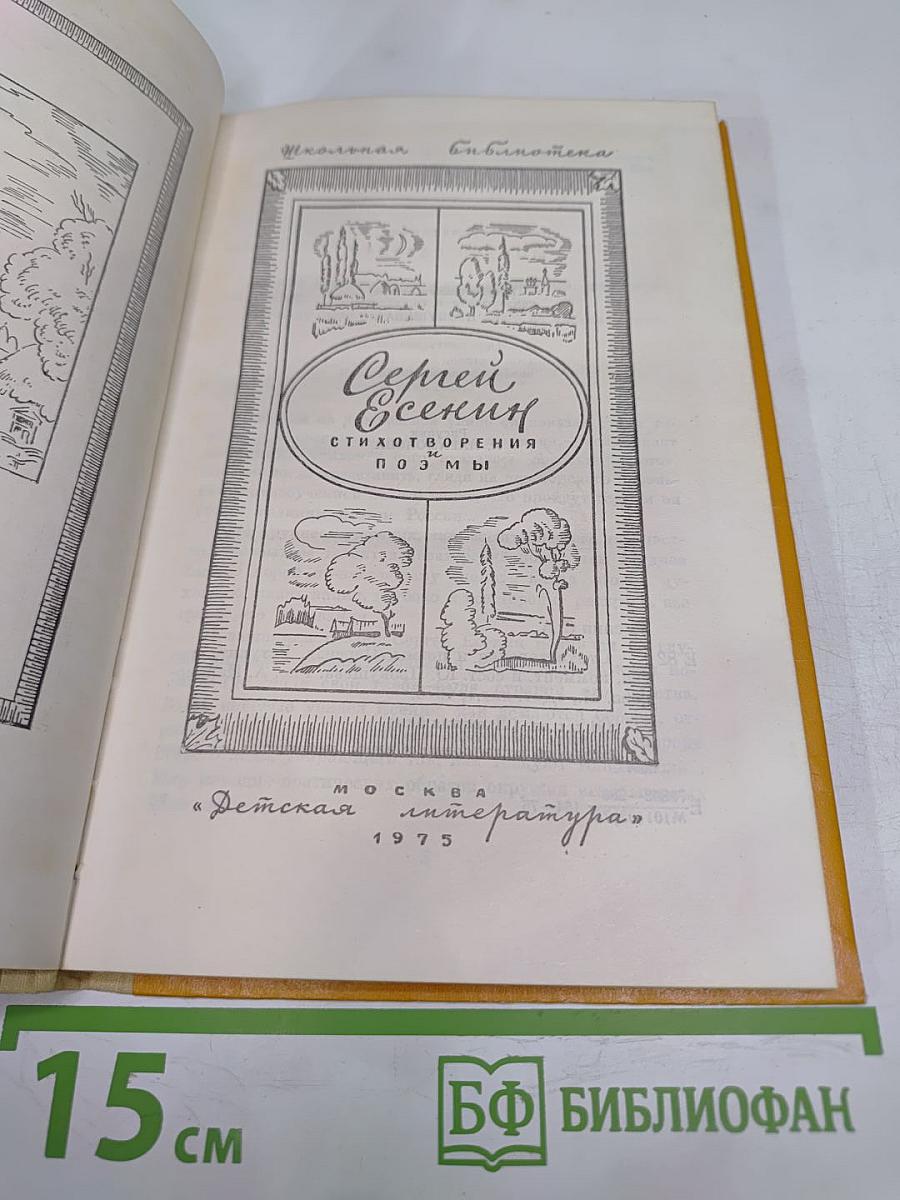 Школьная библиотека
Сергей
Есенин
СТИХОТВОРЕНИЯ
и
ПОЭМЫ
МОСКВА
«Детская литература»
1975
15 см
БФ БИБЛИОФАН